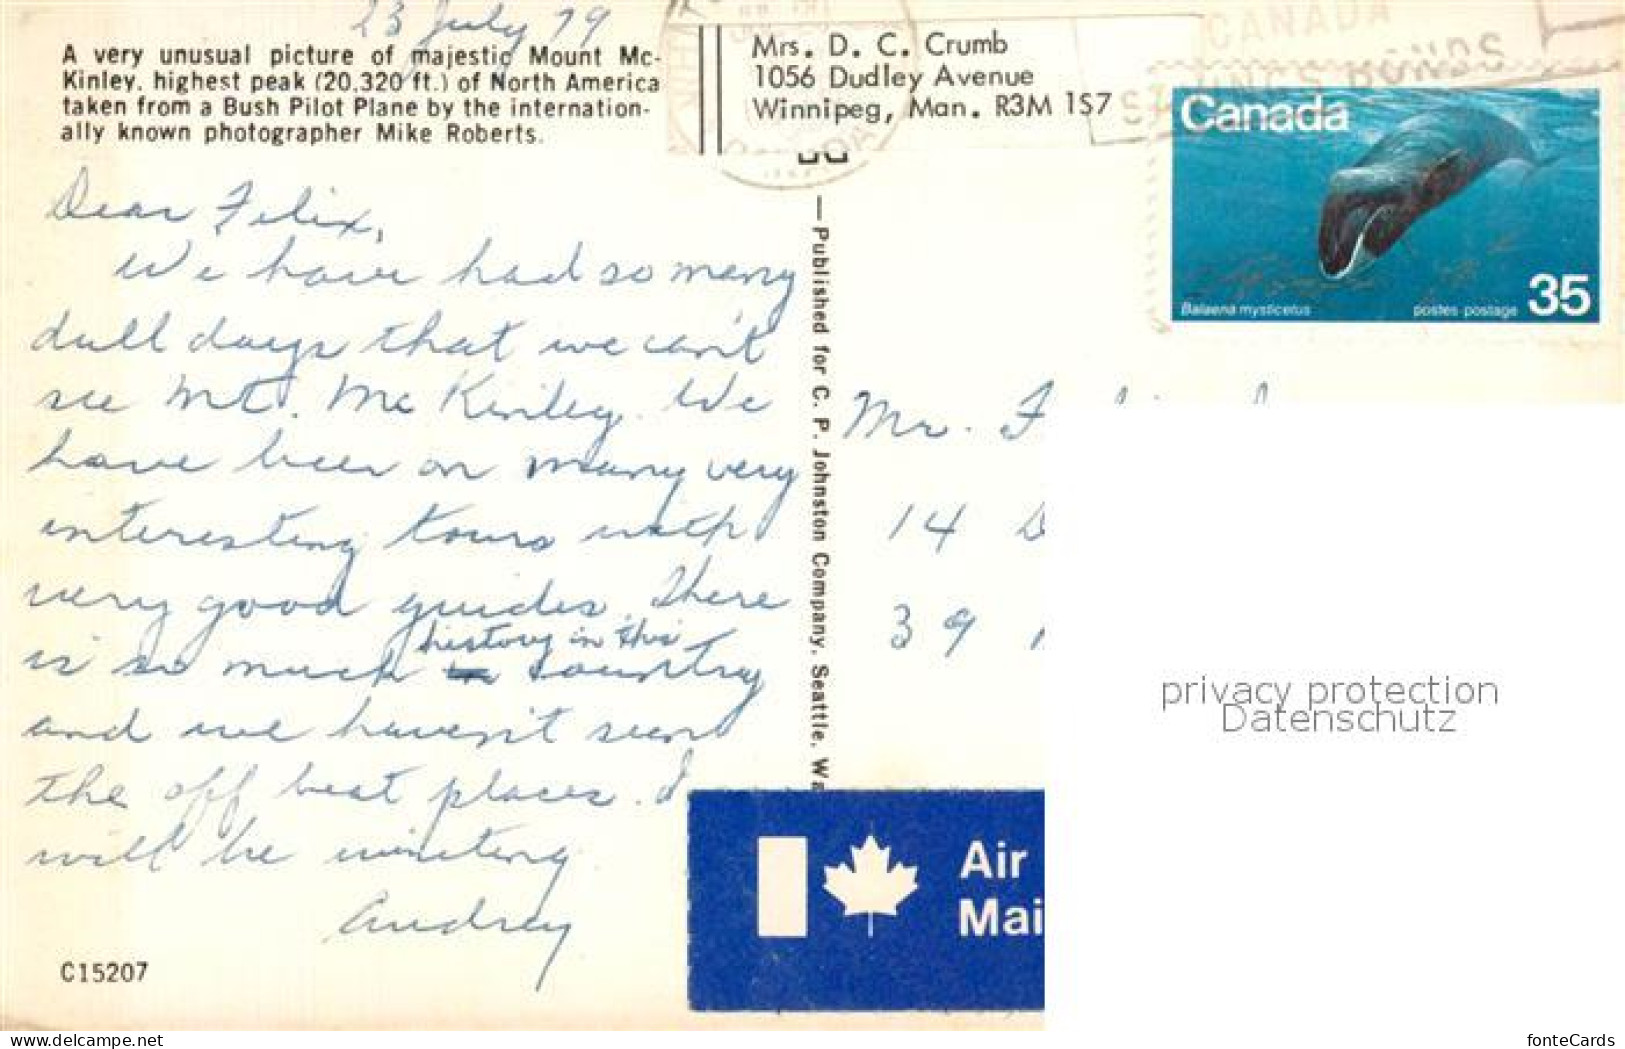 23 July 79
A very unusual picture of majestic Mount Mc-
Kinley, highest peak (20,320 ft.) of North America
taken from a Bush Pilot Plane by the internation-
ally known photographer Mike Roberts.
Mrs. D. C. Crumb
1056 Dudley Avenue
Winnipeg, Man. R3M 1S7
CANADA
SAVINGS BONDS
Canada
Balaena mysticetus
postes-postage
35
Dear Felix,
We have had so many
dull days that we can't
see Mt. McKinley. We
have been on many very
interesting tours with
very good guides. There
history in this
is so much country
and we haven't seen
the off beat places. I
will be writing
Audrey
C15207
— Published for C. P. Johnston Company, Seattle, Wa
Mr. F
14 D
39
Air
Mai
privacy protection
Datenschutz
www.delcampe.net
fonteCards